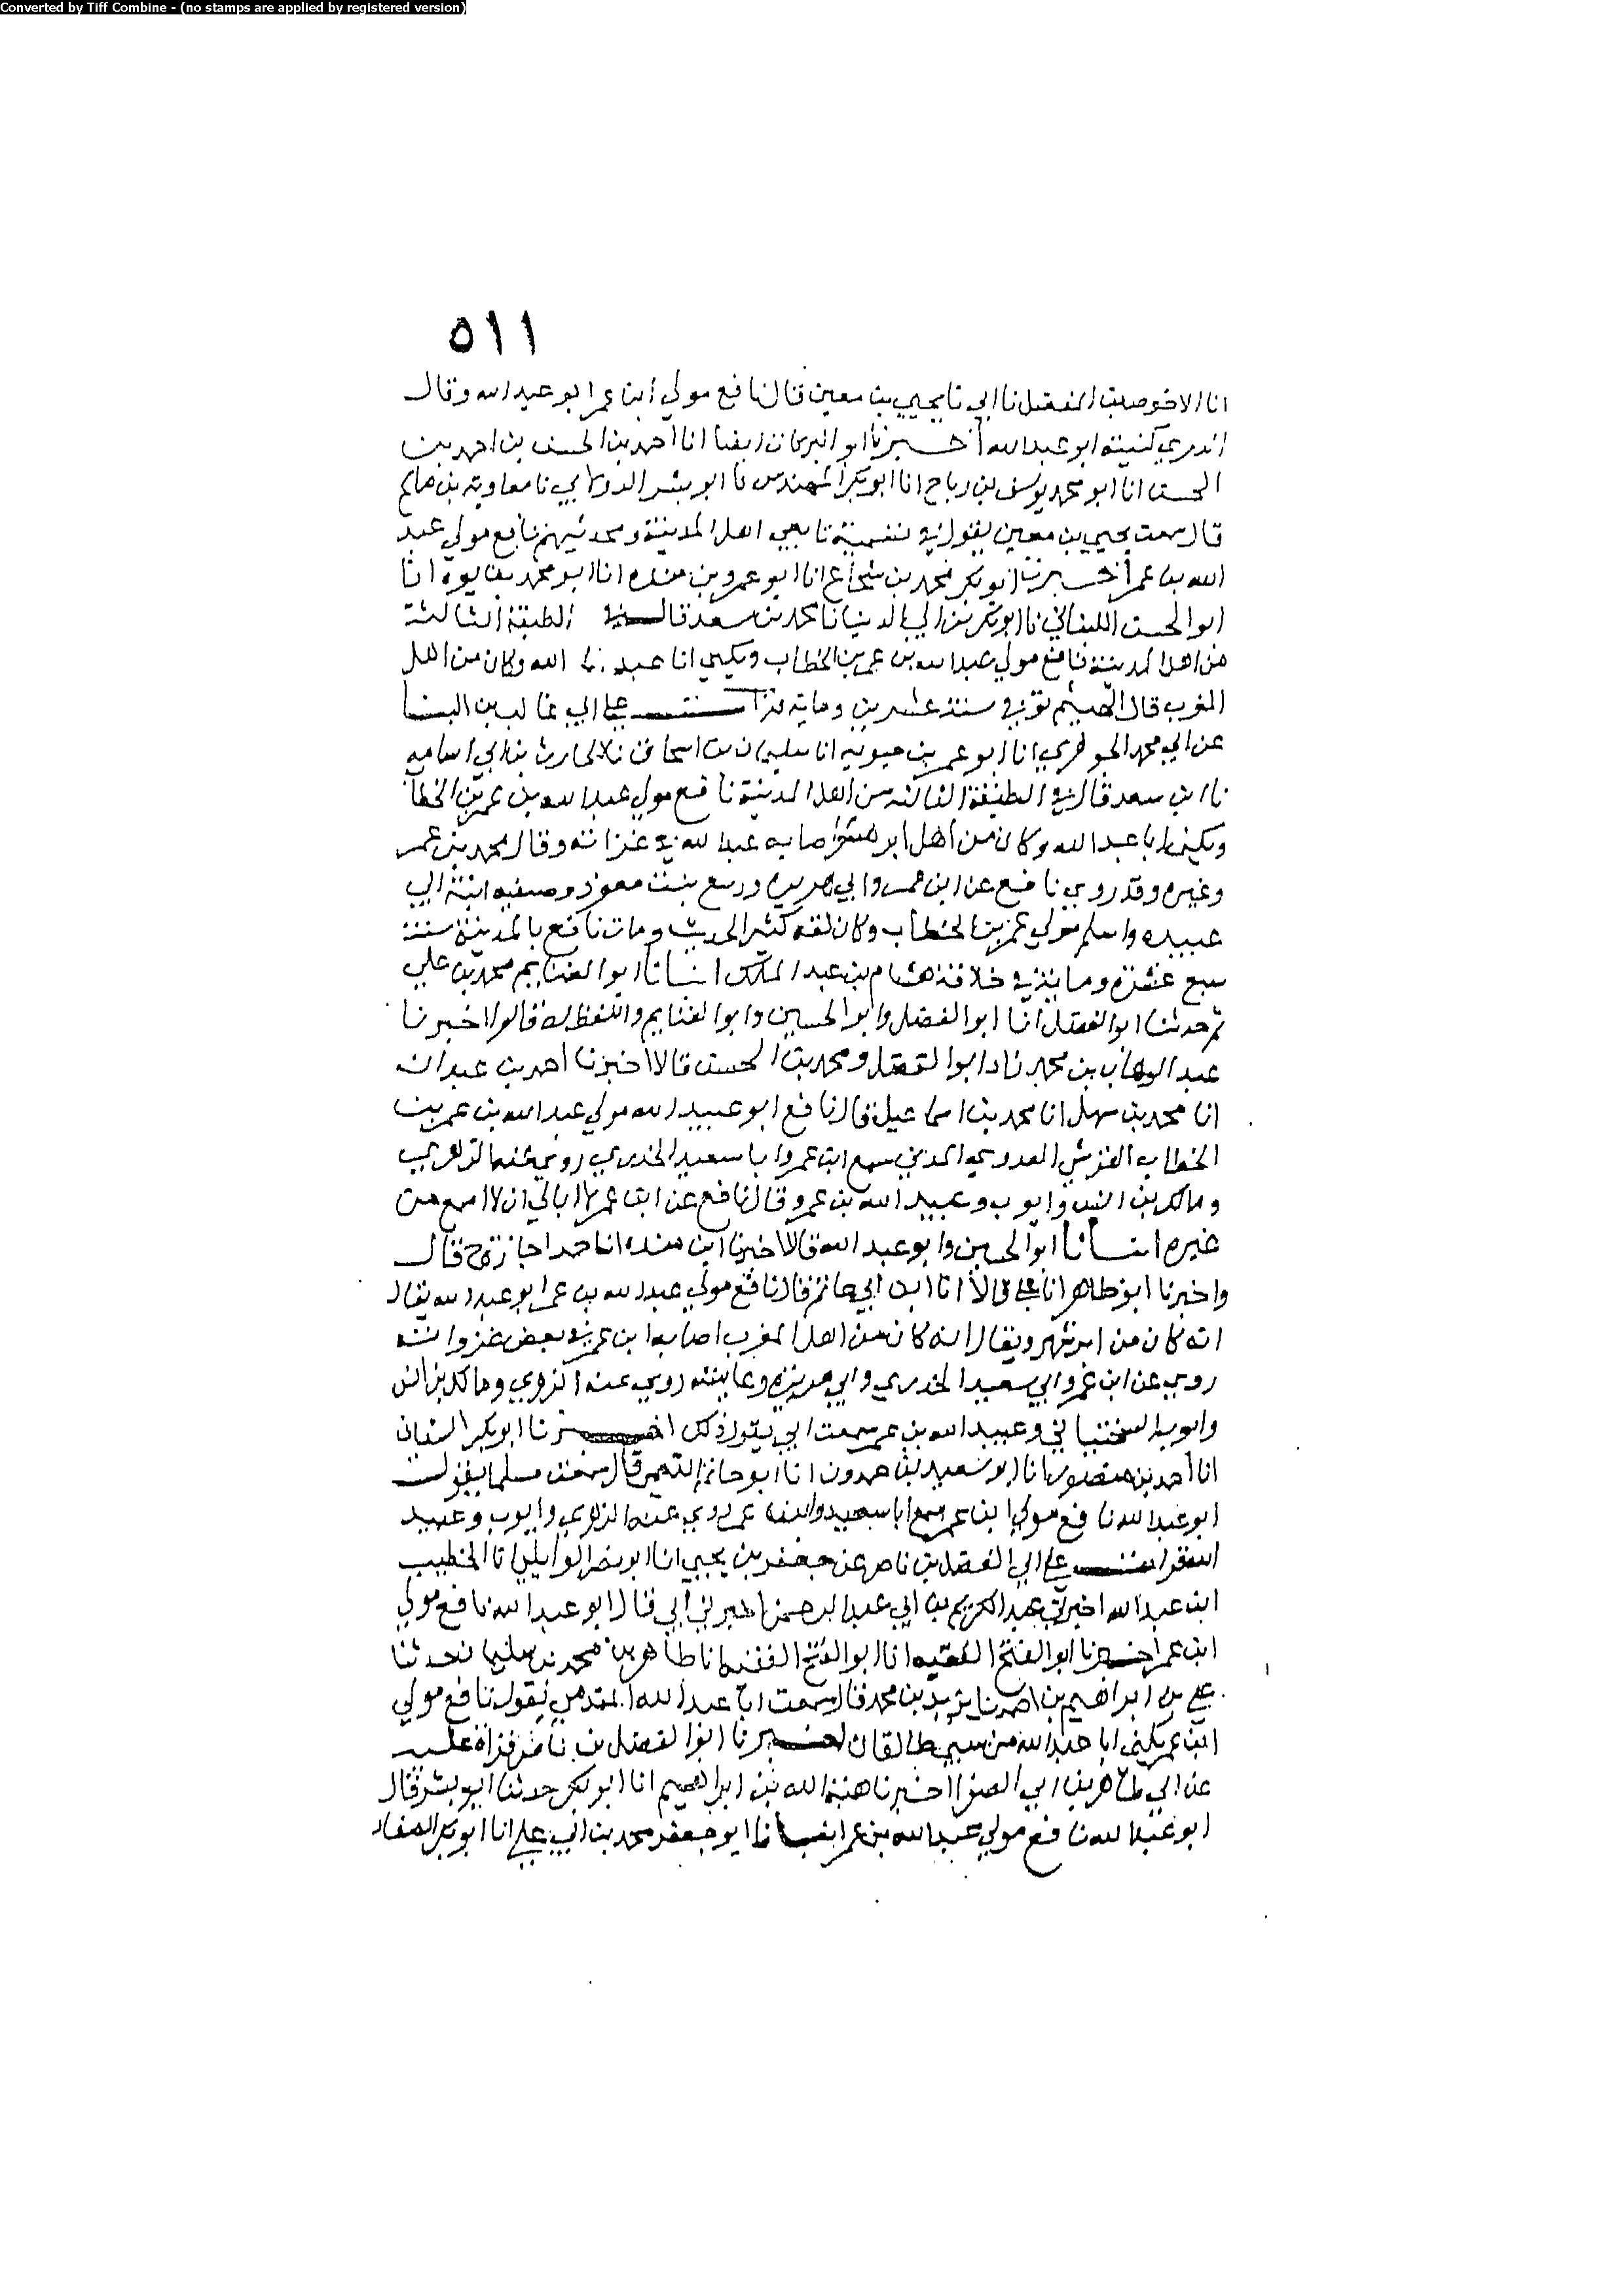 Converted by Tiff Combine - (no stamps are applied by registered version)
٥١١
انا الاخوص بن المفضل نا ابي نا يحيي بن معين قال نافع مولي ابن عمر ابو عبد الله وقال
الدوري كنيته ابو عبد الله اخبرنا ابو البركات ايضا انا احمد بن الحسن بن احمد بن
الحسن انا ابو محمد يوسف بن رباح انا ابو بكر المهندس نا ابو بشر الدولابي نا معاوية بن صالح
قال سمعت يحيي بن معين يقول في تسمية تابعي اهل المدينة ومحدثيهم نافع مولي عبد
الله بن عمر اخبرنا ابو بكر محمد بن شجاع انا ابو عمرو بن منده انا ابو محمد بن يوه انا
ابو الحسن اللبناني نا ابو بكر بن ابي الدنيا نا محمد بن سعد قال في الطبقة الثالثة
من اهل المدينة نافع مولي عبد الله بن عمر بن الخطاب ويكني ابا عبد الله وكان من اهل
المغرب قال الهيثم توفي سنة عشرين وماية قرات علي ابي غالب بن البنا
عن ابي محمد الجوهري انا ابو عمر بن حيويه انا سليمان بن اسحاق نا الحارث بن ابي اسامه
نا ابن سعد قال في الطبقة الثالثه من اهل المدينة نافع مولي عبد الله بن عمر بن الخطاب
ويكني ابا عبد الله وكان من اهل ابرشهر اصابه عبد الله في غزاته وقال محمد بن عمر
وغيره وقد روي نافع عن ابن عمر وابي هريره وربيع بنت معوذ وصفيه ابنة ابي
عبيده واسلم مولي عمر بن الخطاب وكان ثقه كثير الحديث ومات نافع بالمدينة سنة
سبع عشرة وماية في خلافة هشام بن عبد الملك انبانا ابو الغنايم محمد بن علي
ثم حدثنا ابو الفضل انا ابو الفضل وابو الحسين وابو الغنايم واللفظ له قالوا اخبرنا
عبد الوهاب بن محمد زاد ابو الفضل ومحمد بن الحسن قالا اخبرنا احمد بن عبدان
انا محمد بن سهل انا محمد بن اسماعيل قال نافع ابو عبيد الله مولي عبد الله بن عمر بن
الخطاب القرشي العدوي المدني سمع ابن عمر وابا سعيد الخدري روي عنه الزهري
ومالك بن انس وايوب وعبيد الله بن عمر وقال نافع عن ابن عمر لا ابالي ان لا اسمع من
غيره انبانا ابو الحسين وابو عبد الله قالا اخبرنا ابن منده انا حمد اجازة ح قال
واخبرنا ابو طاهر انا علي قالا انا ابن ابي حاتم قال نافع مولي عبد الله بن عمر ابو عبد الله يقال
انه كان من ابرشهر ويقال انه كان من اهل المغرب اصابه ابن عمر في بعض غزواته
روي عن ابن عمر وابي سعيد الخدري وابي هريره وعايشه روي عنه الزهري ومالك بن انس
وايوب السختياني وعبيد الله بن عمر سمعت ابي يقول ذلك اخبرنا ابو بكر الشقاني
انا احمد بن منصور انا ابو سعيد بن حمدون انا ابو حاتم التميمي قال سمعت مسلما يقول
ابو عبد الله نافع مولي ابن عمر سمع ابا سعيد وابن عمر روي عنه الزهري وايوب وعبيد
الله قرات علي ابي الفضل بن ناصر عن جعفر بن يحيي انا ابو نصر الوايلي انا الخطيب
ابن عبد الله اخبرني عبد الكريم بن ابي عبد الرحمن اخبرني ابي قال ابو عبد الله نافع مولي
ابن عمر اخبرنا ابو الفتح الفقيه انا ابو الفتح الفقيه انا طاهر بن محمد بن سليمان حدثنا
علي بن ابراهيم بن احمد نا يزيد بن محمد قال سمعت ابا عبد الله المقدمي يقول نافع مولي
ابن عمر يكني ابا عبد الله من سبي طالقان اخبرنا ابو الفضل بن ناصر قراة عليه
عن ابي طاهر بن ابي الصقر اخبرنا هبة الله بن ابراهيم انا ابو بكر حدثنا ابو بشر قال
ابو عبد الله نافع مولي عبد الله بن عمر انبانا ابو جعفر محمد بن ابي علي انا ابو بكر الصفار